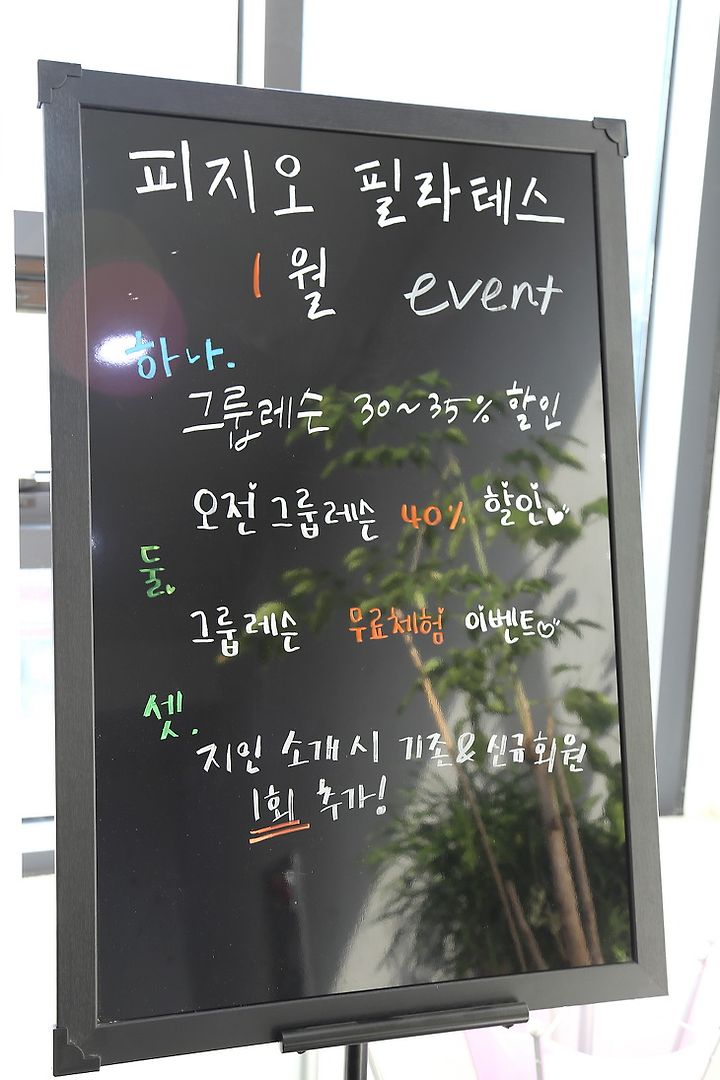 피지오 필라테스
1월 event
하나.
그룹레슨 30~35% 할인
오전 그룹레슨 40% 할인
둘.
그룹레슨 무료체험 이벤트
셋.
지인 소개시 기존&신규회원
1회 추가!